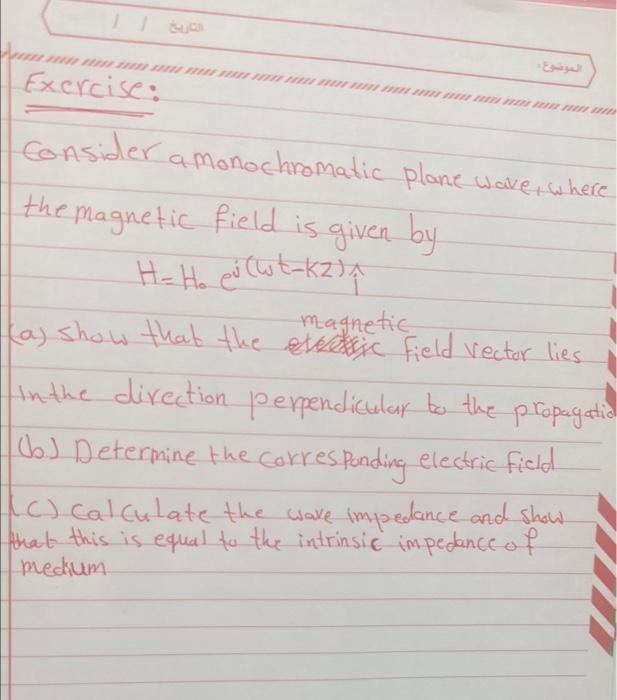 التاريخ / /
الموضوع:
Exercise:
Consider a monochromatic plane wave, where
the magnetic field is given by
H = H₀ e^j(wt-kz) î
magnetic
(a) show that the electric field vector lies
in the direction perpendicular to the propagatio
(b) Determine the corresponding electric field
(c) calculate the wave impedance and show
that this is equal to the intrinsic impedance of
medium